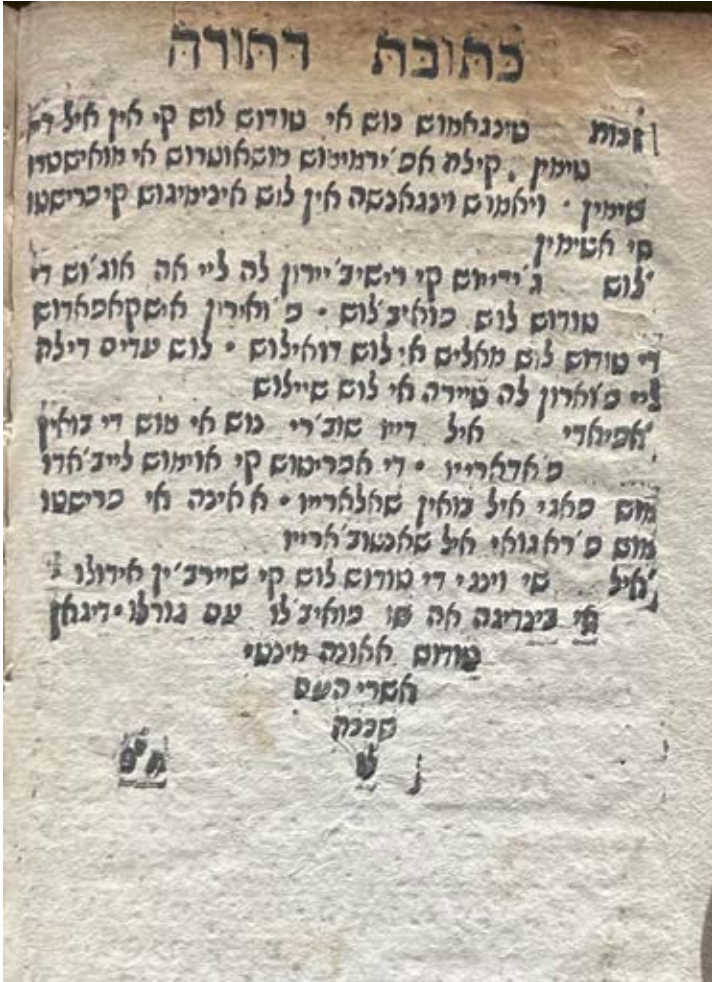 כתובת דתורה
זכות טינגאמוש נוש אי טודוש לוש קי אין איל דיו
טימין . קילה אפ'ירמימוש מושאוטרוש אי מואישטרו
שימין . ויאמוש וינגאנשה אין לוש אינימיגוש קי פרישטו
סי אטימין
לוש ג'ידייוש קי רישיב'יירון לה ליי אה אוג'וש די
טודוש לוש פואיב'לוש . פ'ואירון אישקאפאדוש
די טודוש לוש מאליש אי לוש דואילוש . לוש עדים דילה
ליי פ'וארון לה טיירה אי לוש שיילוש
אפיאדי איל דייו שוב'רי נוש אי מוש די בואין
פ'אדארייו . די אפריטוש קי אוימוש לייב'אדו
מוש פאגי איל בואין שאלארייו . אאינה אי פרישטו
מוש פ'ראגואי איל שאנטוב'ארייו
איל שי וינגי די טודוש לוש קי שיירב'ין אידולו .
אי בינדיגה אה שו פואיב'לו עם גורלו . דיגאן
טודוס אאונה מינטי
אשרי העם
שככה
לו